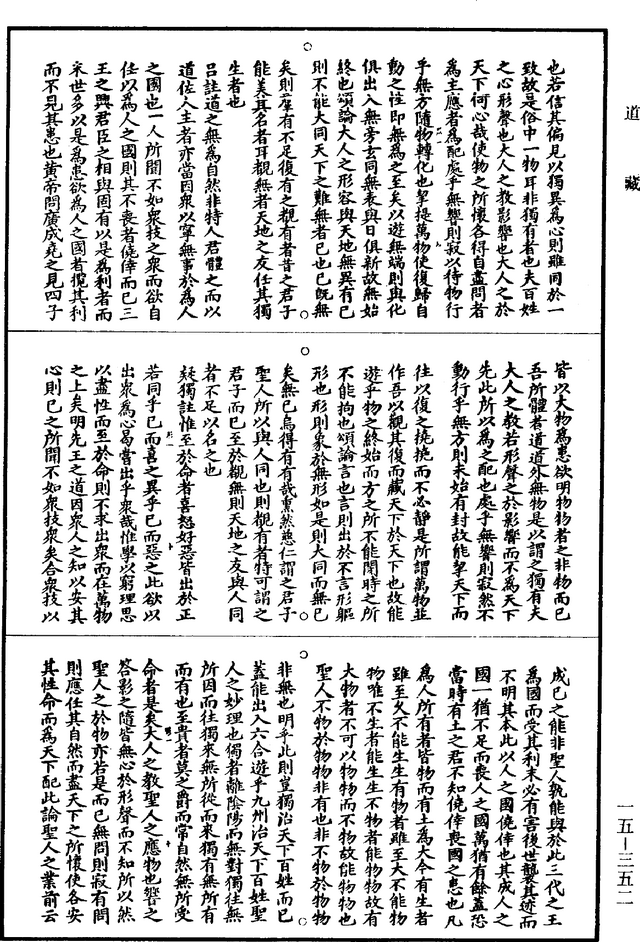 道藏
也若信其偏見以獨異為心則雖同於一
致故是俗中一物耳非獨有者也夫百姓
之心形聲也大人之教影響也大人之於
天下何心哉使物之所懷各得自盡問者
為主應者為配處乎無響則寂以待物行
乎無方隨物轉化也挈提萬物使復歸自
動之性即無為之至矣以遊無端則與化
俱出入無旁玄同無表與日俱新故無始
終也頌論大人之形容與天地無異有己
則不能大同天下之難無者已也已既無
矣則羣有不足復有之覩有者昔之君子
能美其名者耳覩無者天地之友任其獨
生者也
呂註道之無為自然非特人君體之而以
道佐人主者亦當因衆以寧無事於為人
之國也一人所聞不如衆技之衆而欲自
任以為人之國則其不喪者僥倖而已三
王之興君臣之相與固有以是為利者而
末世多以是為患欲為人之國者攬其利
而不見其患也黃帝問廣成堯之見四子
皆以大物為患欲明物物者之非物而已
吾所體者道道外無物是以謂之獨有夫
大人之教若形聲之於影響而不為天下
先此所以為之配也處乎無響則寂然不
動行乎無方則未始有封故能挈天下而
往以復之撓撓而不必靜是所謂萬物並
作吾以觀其復而藏天下於天下也故能
遊乎物之終始而方之所不能閡時之所
不能拘也頌論言也言則出於不言形軀
形也形則象於無形如是則大同而無已
矣無已烏得有有哉熏然慈仁謂之君子
聖人所以與人同也則覩有者特可謂之
君子而已至於覩無則天地之友與人同
者不足以名之也
疑獨註惟至於命者喜怒好惡皆出於正
若同乎已而喜之異乎已而惡之此欲以
出衆為心曷嘗出乎衆哉惟學以窮理思
以盡性而至於命則不求出衆而在萬物
之上矣明先王之道因衆人之知以安其
心則已之所聞不如衆技衆矣合衆技以
成已之能非聖人孰能與於此三代之王
為國而受其利末必有害後世襲其迹而
不明其本此以人之國僥倖也其成人之
國一猶不足而喪人之國萬猶有餘蓋恐
當時有土之君不知僥倖喪國之患也凡
為人所有者皆物而有土為大今有生者
雖至久不能生生有物者雖至大不能物
物唯不生者能生生不物者能物物故有
大物者不可以物物而不物故能物物也
聖人不物於物物非有也非不物於物物
非無也明乎此則豈獨治天下百姓而已
蓋能出入六合遊乎九州治天下百姓聖
人之妙理也獨者離陰陽而無對獨往無
所因而往獨來無所從而來獨有無所有
而有也至貴者莫之爵而常自然無所受
命者是矣大人之教聖人之應物也響之
答影之隨皆無心於形聲而不知所以然
聖人之於物亦若是而已無問則寂有問
則應任其自然而盡天下之所懷使各安
其性命而為天下配此論聖人之業前云
一五—三五二